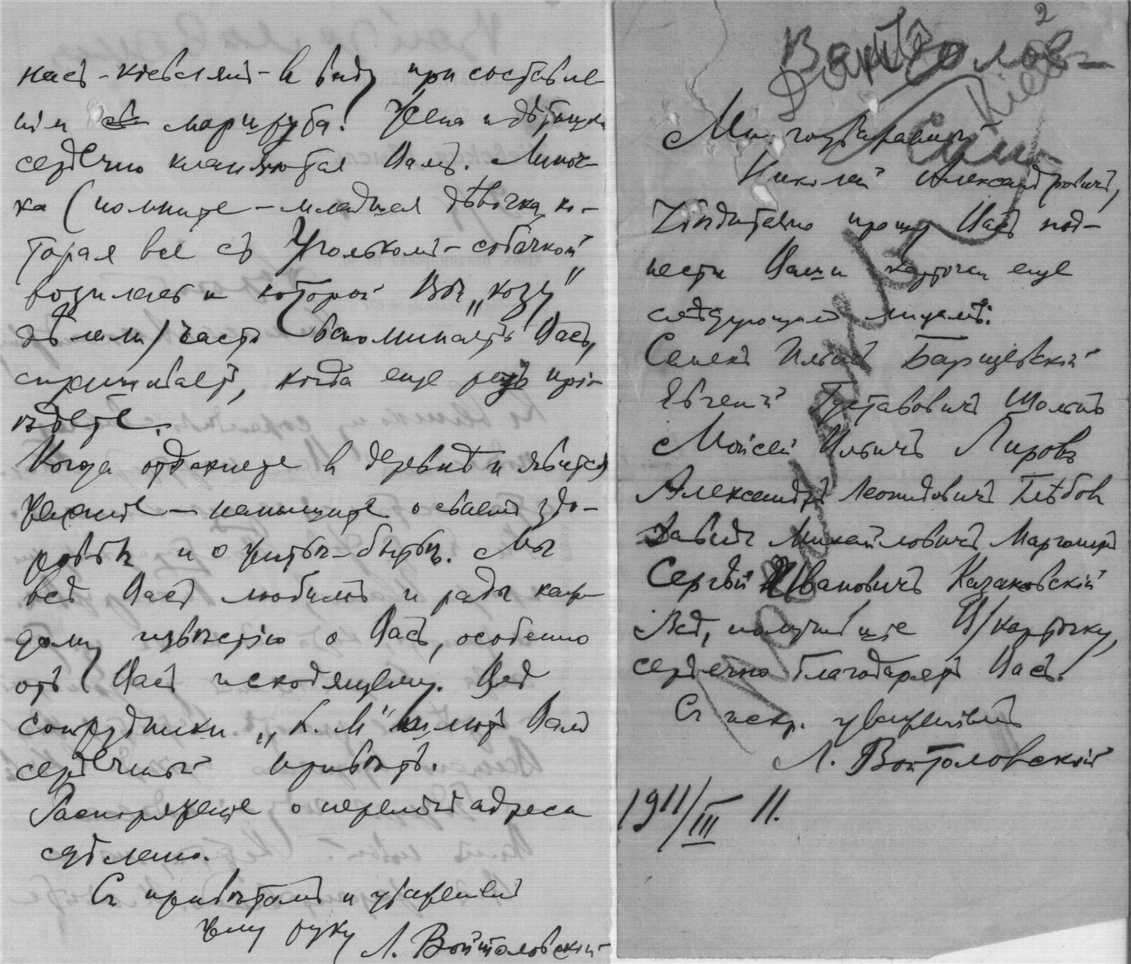 насъ - кіевлянъ - въ виду при составле-
ніи маршрута! Жена и дѣтишки
сердечно кланяются Вамъ. Линоч-
ка (помните - младшая дѣвочка, ко-
торая все съ Угольком - собачкой
возилась и которой Вы „козу"
дѣлали) часто вспоминаетъ Васъ,
спрашиваетъ, когда еще разъ прі-
ѣдете.
Когда отдохнете въ деревнѣ и явится
желаніе - напишите о своемъ здо-
ровьѣ и о житьѣ-бытьѣ. Мы
всѣ Васъ любимъ и рады каж-
дому извѣстію о Васъ, особенно
отъ Васъ исходящему. Всѣ
сотрудники „К. М" шлютъ Вамъ
сердечный привѣтъ.
Распоряженіе о перемѣнѣ адреса
сдѣлано.
Съ привѣтомъ и уваженіем
жму руку Л. Войтоловскій
2
Войтолов-
Кіев
Многоуважаемый
Николай Александровичъ,
Убѣдительно прошу Васъ под-
нести Ваши карточки еще
слѣдующимъ лицамъ:
Семенъ Ильичъ Барщевскій
Евгеній Густавовичъ
Моисей Ильичъ Лировъ
Александръ Леонидовичъ
Давидъ Михайловичъ Марголинъ
Сергѣй Ивановичъ Казаковскій
Всѣ, получившіе В/карточку,
сердечно благодарятъ Васъ.
Съ искр. уваженіемъ
Л. Войтоловскій
1911/III 11.